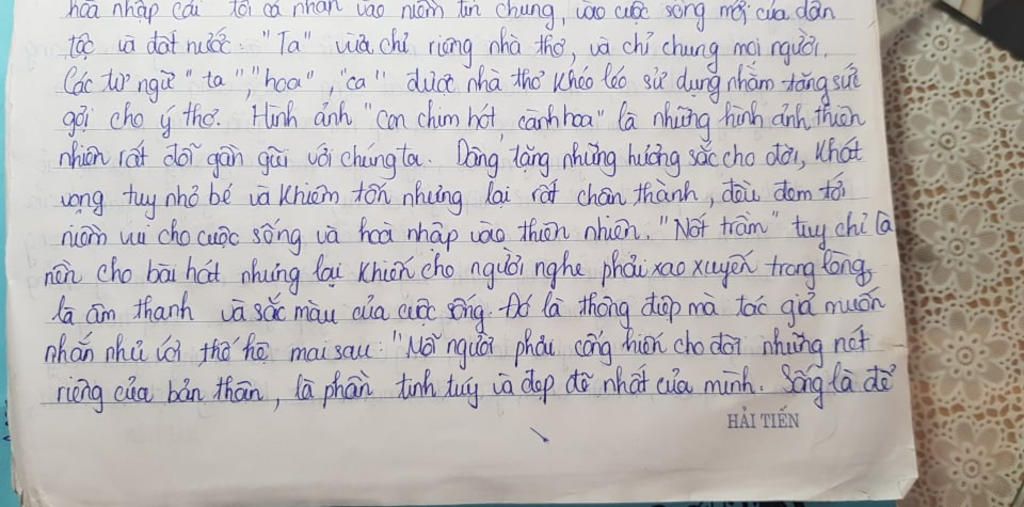 hoà nhập cái tôi cá nhân vào niềm tin chung, vào cuộc sống mới của dân
tộc và đất nước. "Ta" vừa chỉ riêng nhà thơ, và chỉ chung mọi người.
Các từ ngữ "ta", "hoa", "ca" được nhà thơ khéo léo sử dụng nhằm tăng sức
gợi cho ý thơ. Hình ảnh "con chim hót, cành hoa" là những hình ảnh thiên
nhiên rất đỗi gần gũi với chúng ta. Dâng tặng những hương sắc cho đời, khát
vọng tuy nhỏ bé và khiêm tốn nhưng lại rất chân thành, đều đem tới
niềm vui cho cuộc sống và hoà nhập vào thiên nhiên. "Nốt trầm" tuy chỉ là
nền cho bài hát nhưng lại khiến cho người nghe phải xao xuyến trong lòng,
là âm thanh và sắc màu của cuộc sống. Đó là thông điệp mà tác giả muốn
nhắn nhủ với thế hệ mai sau: "Mỗi người phải cống hiến cho đời những nét
riêng của bản thân, là phần tinh tuý và đẹp đẽ nhất của mình. Sống là để
HẢI TIẾN